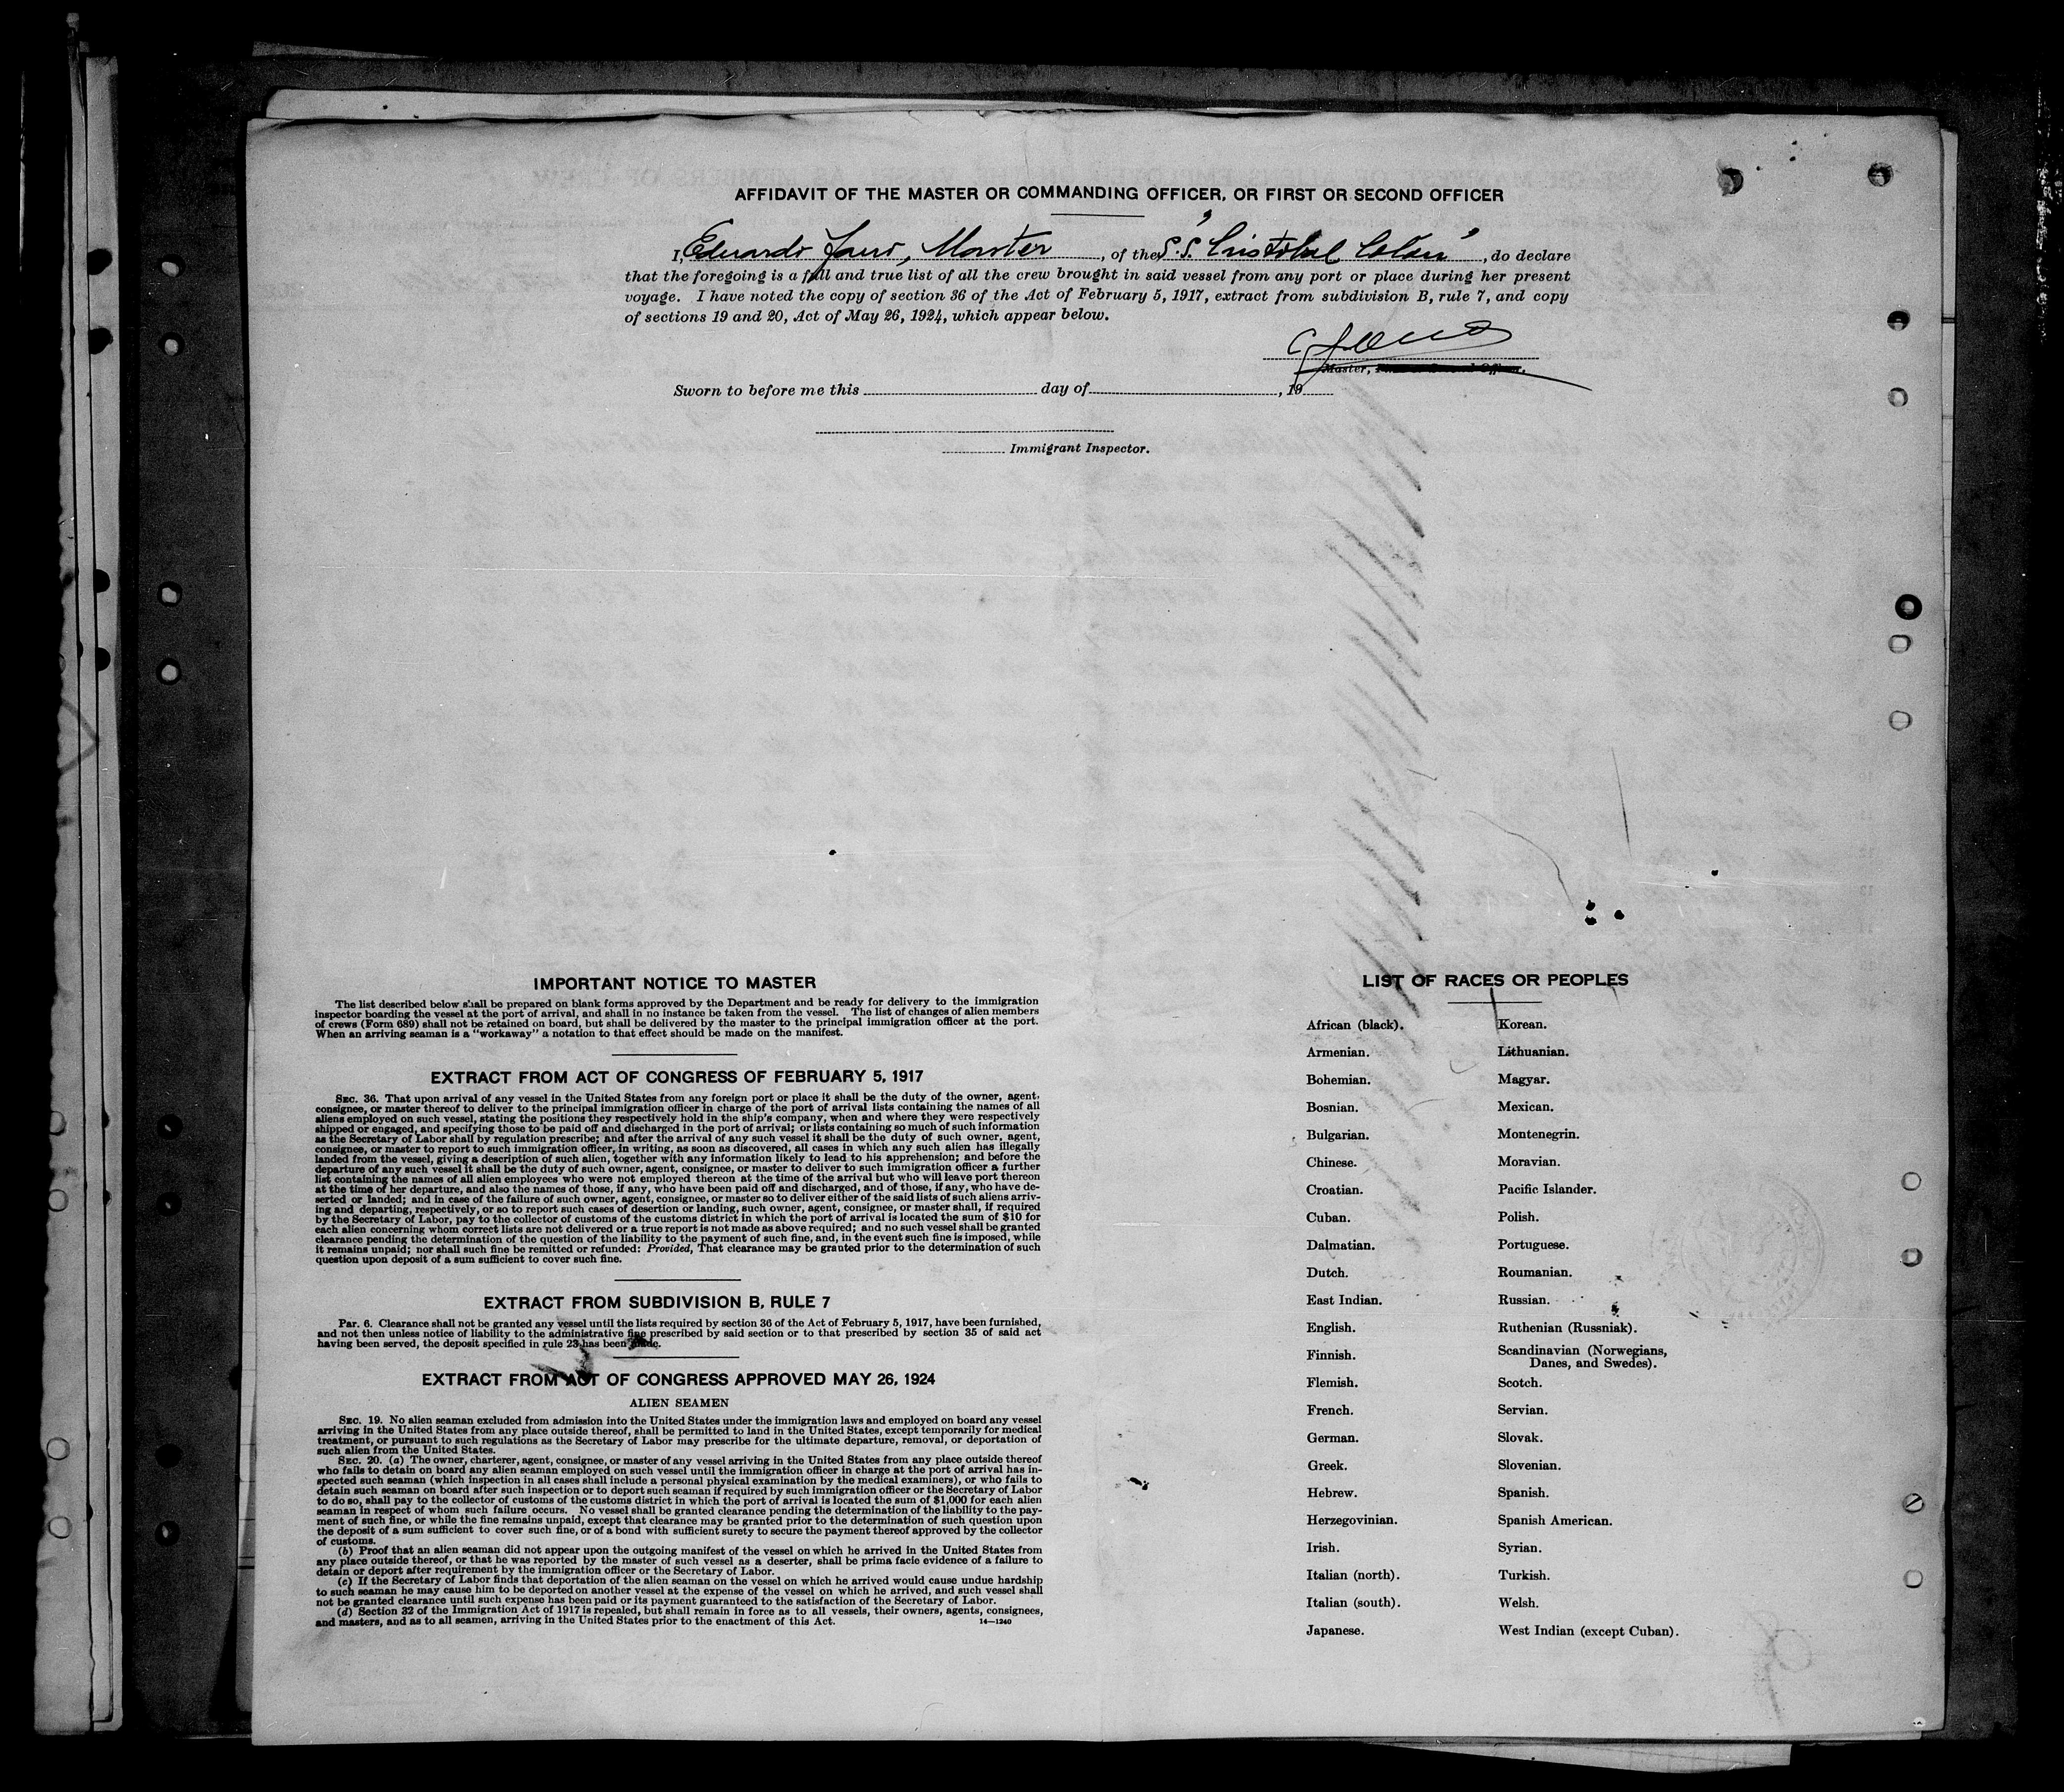 AFFIDAVIT OF THE MASTER OR COMMANDING OFFICER, OR FIRST OR SECOND OFFICER
I, Eduardo Fano, Master, of the "S.S. Cristobal Colon", do declare
that the foregoing is a full and true list of all the crew brought in said vessel from any port or place during her present
voyage. I have noted the copy of section 36 of the Act of February 5, 1917, extract from subdivision B, rule 7, and copy
of sections 19 and 20, Act of May 26, 1924, which appear below.
Master,
Sworn to before me this day of , 19
Immigrant Inspector.
IMPORTANT NOTICE TO MASTER
The list described below shall be prepared on blank forms approved by the Department and be ready for delivery to the immigration
inspector boarding the vessel at the port of arrival, and shall in no instance be taken from the vessel. The list of changes of alien members
of crews (Form 689) shall not be retained on board, but shall be delivered by the master to the principal immigration officer at the port.
When an arriving seaman is a "workaway" a notation to that effect should be made on the manifest.
EXTRACT FROM ACT OF CONGRESS OF FEBRUARY 5, 1917
SEC. 36. That upon arrival of any vessel in the United States from any foreign port or place it shall be the duty of the owner, agent,
consignee, or master thereof to deliver to the principal immigration officer in charge of the port of arrival lists containing the names of all
aliens employed on such vessel, stating the positions they respectively hold in the ship's company, when and where they were respectively
shipped or engaged, and specifying those to be paid off and discharged in the port of arrival; or lists containing so much of such information
as the Secretary of Labor shall by regulation prescribe; and after the arrival of any such vessel it shall be the duty of such owner, agent,
consignee, or master to report to such immigration officer, in writing, as soon as discovered, all cases in which any such alien has illegally
landed from the vessel, giving a description of such alien, together with any information likely to lead to his apprehension; and before the
departure of any such vessel it shall be the duty of such owner, agent, consignee, or master to deliver to such immigration officer a further
list containing the names of all alien employees who were not employed thereon at the time of the arrival but who will leave port thereon
at the time of her departure, and also the names of those, if any, who have been paid off and discharged, and of those, if any, who have de-
serted or landed; and in case of the failure of such owner, agent, consignee, or master so to deliver either of the said lists of such aliens arriv-
ing and departing, respectively, or so to report such cases of desertion or landing, such owner, agent, consignee, or master shall, if required
by the Secretary of Labor, pay to the collector of customs of the customs district in which the port of arrival is located the sum of $10 for
each alien concerning whom correct lists are not delivered or a true report is not made as above required; and no such vessel shall be granted
clearance pending the determination of the question of the liability to the payment of such fine, and, in the event such fine is imposed, while
it remains unpaid; nor shall such fine be remitted or refunded: Provided, That clearance may be granted prior to the determination of such
question upon deposit of a sum sufficient to cover such fine.
EXTRACT FROM SUBDIVISION B, RULE 7
Par. 6. Clearance shall not be granted any vessel until the lists required by section 36 of the Act of February 5, 1917, have been furnished,
and not then unless notice of liability to the administrative fine prescribed by said section or to that prescribed by section 35 of said act
having been served, the deposit specified in rule 23 has been made.
EXTRACT FROM ACT OF CONGRESS APPROVED MAY 26, 1924
ALIEN SEAMEN
SEC. 19. No alien seaman excluded from admission into the United States under the immigration laws and employed on board any vessel
arriving in the United States from any place outside thereof, shall be permitted to land in the United States, except temporarily for medical
treatment, or pursuant to such regulations as the Secretary of Labor may prescribe for the ultimate departure, removal, or deportation of
such alien from the United States.
SEC. 20. (a) The owner, charterer, agent, consignee, or master of any vessel arriving in the United States from any place outside thereof
who fails to detain on board any alien seaman employed on such vessel until the immigration officer in charge at the port of arrival has in-
spected such seaman (which inspection in all cases shall include a personal physical examination by the medical examiners), or who fails to
detain such seaman on board after such inspection or to deport such seaman if required by such immigration officer or the Secretary of Labor
to do so, shall pay to the collector of customs of the customs district in which the port of arrival is located the sum of $1,000 for each alien
seaman in respect of whom such failure occurs. No vessel shall be granted clearance pending the determination of the liability to the pay-
ment of such fine, or while the fine remains unpaid, except that clearance may be granted prior to the determination of such question upon
the deposit of a sum sufficient to cover such fine, or of a bond with sufficient surety to secure the payment thereof approved by the collector
of customs.
(b) Proof that an alien seaman did not appear upon the outgoing manifest of the vessel on which he arrived in the United States from
any place outside thereof, or that he was reported by the master of such vessel as a deserter, shall be prima facie evidence of a failure to
detain or deport after requirement by the immigration officer or the Secretary of Labor.
(c) If the Secretary of Labor finds that deportation of the alien seaman on the vessel on which he arrived would cause undue hardship
to such seaman he may cause him to be deported on another vessel at the expense of the vessel on which he arrived, and such vessel shall
not be granted clearance until such expense has been paid or its payment guaranteed to the satisfaction of the Secretary of Labor.
(d) Section 32 of the Immigration Act of 1917 is repealed, but shall remain in force as to all vessels, their owners, agents, consignees,
and masters, and as to all seamen, arriving in the United States prior to the enactment of this Act.
14—1240
LIST OF RACES OR PEOPLES
African (black).
Armenian.
Bohemian.
Bosnian.
Bulgarian.
Chinese.
Croatian.
Cuban.
Dalmatian.
Dutch.
East Indian.
English.
Finnish.
Flemish.
French.
German.
Greek.
Hebrew.
Herzegovinian.
Irish.
Italian (north).
Italian (south).
Japanese.
Korean.
Lithuanian.
Magyar.
Mexican.
Montenegrin.
Moravian.
Pacific Islander.
Polish.
Portuguese.
Roumanian.
Russian.
Ruthenian (Russniak).
Scandinavian (Norwegians,
Danes, and Swedes).
Scotch.
Servian.
Slovak.
Slovenian.
Spanish.
Spanish American.
Syrian.
Turkish.
Welsh.
West Indian (except Cuban).